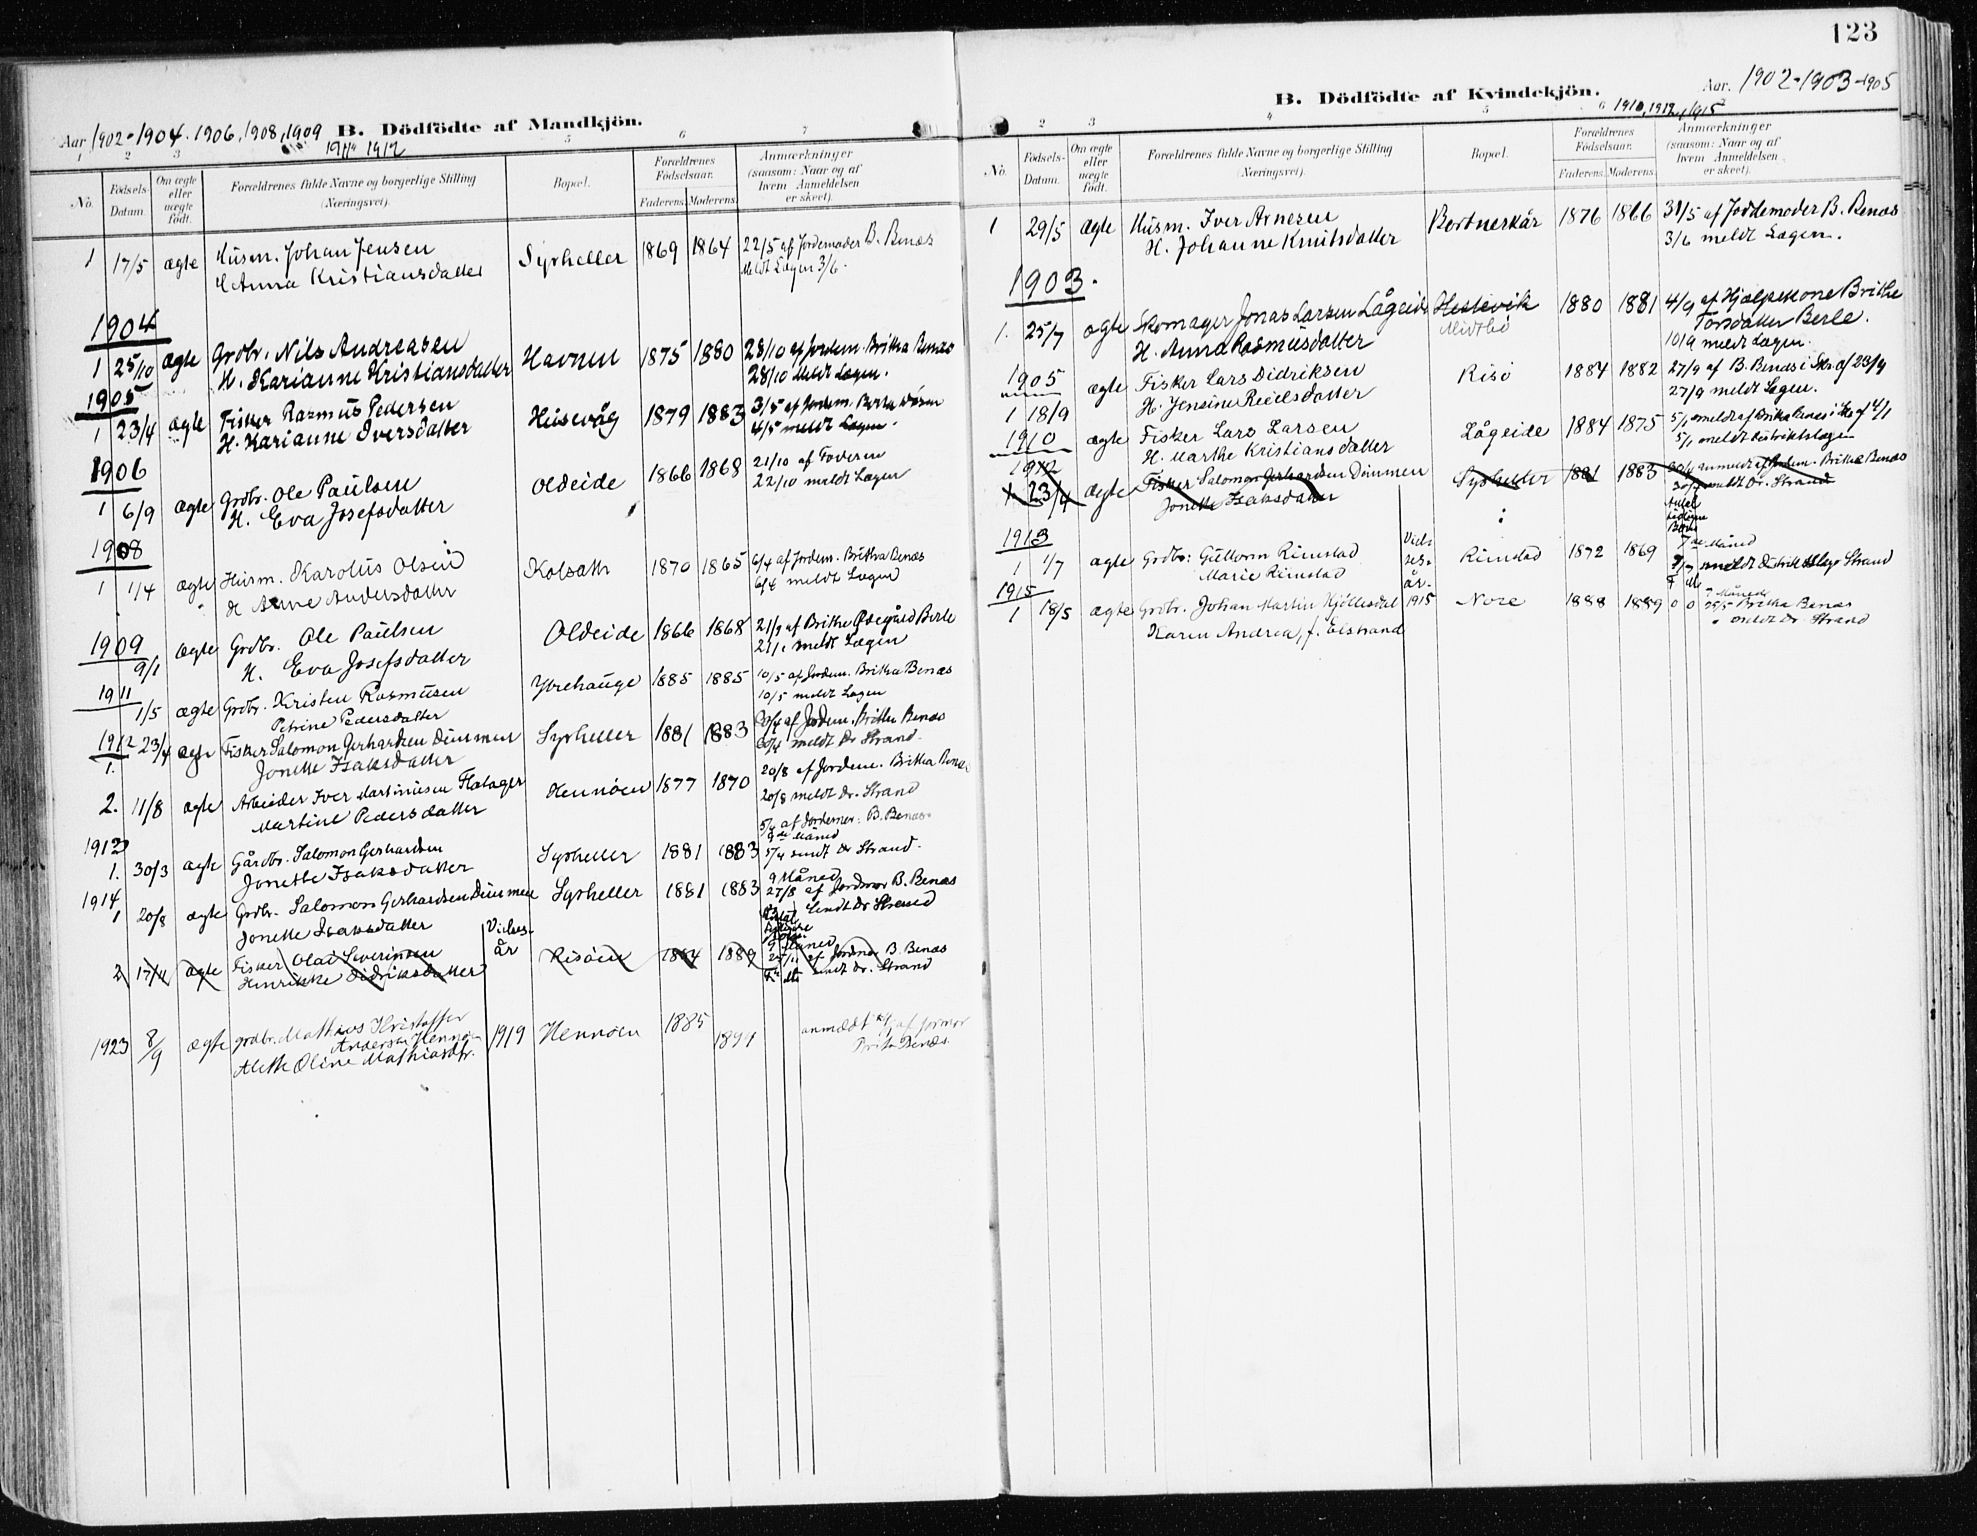 Aar 1902-1904. 1906, 1908, 1909 B. Dödfödte af Mandkjön.
1911 1912
1 2 3 5 6 7
No.
Födsels-Datum.
Om ægte eller uægte födt.
Forældrenes fulde Navne og borgerlige Stilling (Næringsvei).
Bopæl.
Forældrenes Födselsaar.
Faderens. Moderens.
Anmærkninger (saasom: Naar og af hvem Anmeldelsen er skeet).
1 17/5 ægte Husm. Johan Jensen Syrheller 1869 1864 22/5 af Jordemoder B. Benæs
Anna Kristiansdatter Meldt Lægen 3/6.
1904
1 25/10 ægte Grdbr. Nils Andreasen Havnen 1875 1880 28/10 af Jordem. Britha Benæs
H. Karianne Kristiansdatter 28/10 meldt Lægen.
1905
1 23/4 ægte Fisker Rasmus Pedersen Husevåg 1879 1883 3/5 af Jordem.
H. Karianne Iversdatter 4/5 meldt Lægen.
1906
1 6/9 ægte Grdbr. Ole Paulsen Oldeide 1866 1868 21/10 af Faderen
H. Eva Josefsdatter 22/10 meldt Lægen
1908
1 1/4 ægte Husm. Karolus Olsen Kolsæth 1870 1865 6/4 af Jordem. Britha Benæs
H. Anne Andersdatter 6/4 meldt Lægen
1909
9/1 ægte Grdbr. Ole Paulsen Oldeide 1866 1868 21/1 af Brithe Berle
H. Eva Josefsdatter 21/1 meldt Lægen
1911
1/5 ægte Grdbr. Kristen Rasmusen Ytrehauge 1885 1885 10/5 af Jordem. Britha Benæs
Petrine Pedersdatter 10/5 meldt Lægen
1912 23/4 ægte Fisker Salomon Gerhardsen Dimmen Syrheller 1881 1883 30/4 af Jordem. Brithe Benæs
1. Jonette Isaksdatter 30/4 meldt Dr Strand.
2. 11/8 ægte Arbeider Iver Martinusen Flatager Hennöen 1877 1870 20/8 af Jordem. Britha Benæs
Martine Pedersdatter 20/8 meldt Dr. Strand
1913 5/4 af Jordemor. B. Benæs
1. 30/3 ægte Gårdbr. Salomon Gerhardsen Syrheller 1881 1883 5/4 sendt Dr Strand.
Jonette Isaksdatter
1914 9 Måned
1 20/8 ægte Grdbr. Salomon Gerhardsen Dimmen Syrheller 1881 1883 27/8 af Jordmor B. Benæs
Jonette Isaksdatter Sendt Dr Strand
Vielses-år
2 17/4 ægte Fisker Olai Severinsen Risöen 1884 1889 af Jordmor B. Benæs
Henrikke Didriksdatter sendt dr. Strand
1923 8/9 ægte grdbr. Mathias Kristoffer 1919 Hennöen 1885 anmeldt af jormor
Andersen Hennøen 1894 Brita Benæs.
Alette Oline Mathiasdtr.
123
B. Dödfödte af Kvindekjön. Aar. 1902-1903-1905
1910, 1912, 1915
2 3 4 5 6 7
No.
Födsels-Datum.
Om ægte eller uægte födt.
Forældrenes fulde Navne og borgerlige Stilling (Næringsvei).
Bopæl.
Forældrenes Födselsaar.
Faderens. Moderens.
Anmærkninger (saasom: Naar og af hvem Anmeldelsen er skeet).
1 29/5 ægte Husm. Iver Arnesen Bortneskår 1876 1866 31/5 af Jordemoder B. Benæs
H. Johanne Knutsdatter 3/6 meldt Lægen.
1903.
1. 25/7 ægte Skomager Jonas Larsen Lågeide Hestevik 1880 1881 4/9 af Hjælpekone Brithe
H. Anna Rasmusdatter Midtbö Torsdatter Berle.
10/9 meldt Lægen.
1905 ægte Fisker Lars Didriksen Risö 1884 1882 27/9 af B. Benæs i Skr. af 23/9
1 18/9 H. Jensine Reielsdatter 27/9 meldt Lægen.
1910 ægte Fisker Lars Larsen Lågeide 1884 1875 5/1 meldt af Britha Benæs i Skr. af 4/1
H. Marthe Kristiansdatter 5/1 meldt distriktslægen
1912
1. 23/4 ægte Fisker Salomon Gerhardsen Dimmen Syrheller 1881 1883 30/4 anmeldt af Jordem. Britha Benæs
Jonette Isaksdatter 30/4 meldt Dr. Strand
Antal tidligere Börn
1913
1 1/7 ægte Grdbr. Guttorm Rimstad Rimstad 1872 1869 7de Måned
Marie Rimstad meldt Distriktslæge Strand
Vielsesår
1915 F M
1 18/5 ægte Grdbr. Johan Martin Hjöllesdal 1915 Nore 1888 1889 0 0 25/5 Britha Benæs
Karen Andrea, f. Elstrand meldt Dr. Strand